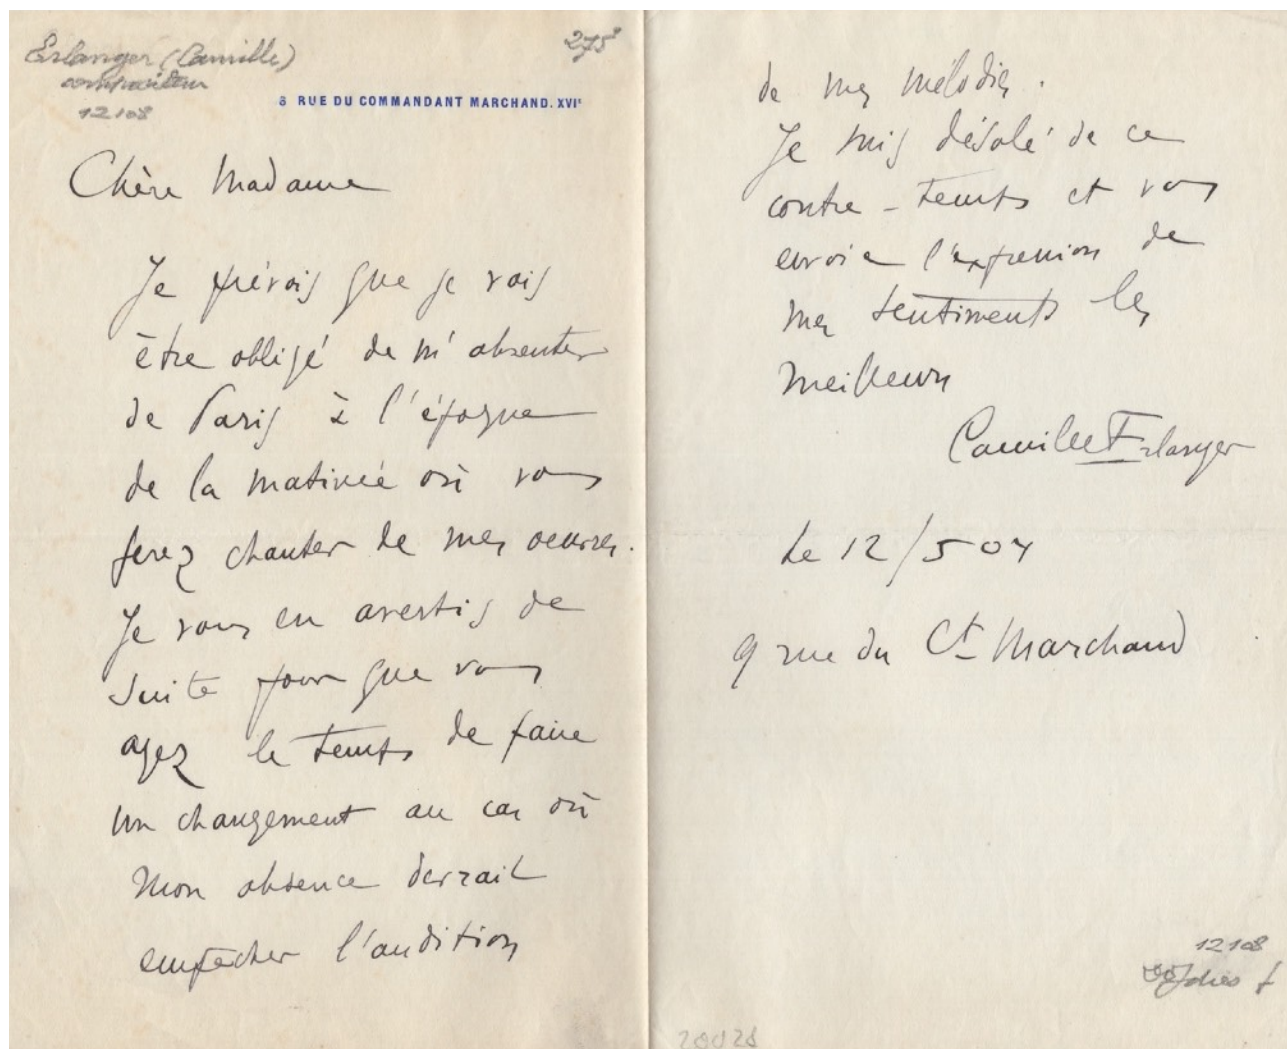 Erlanger (Camille)
compositeur
12108
275
8 RUE DU COMMANDANT MARCHAND. XVIᵉ
Chère Madame
Je prévois que je vais
être obligé de m'absenter
de Paris à l'époque
de la matinée où vous
ferez chanter de mes oeuvres.
Je vous en avertis de
suite pour que vous
ayez le temps de faire
un changement au cas où
mon absence devrait
empêcher l'audition
de mes mélodies.
Je suis désolé de ce
contre-temps et vous
envoie l'expression de
mes sentiments les
meilleurs
Camille Erlanger
Le 12/5 04
9 rue du Ct Marchand
12108
20028